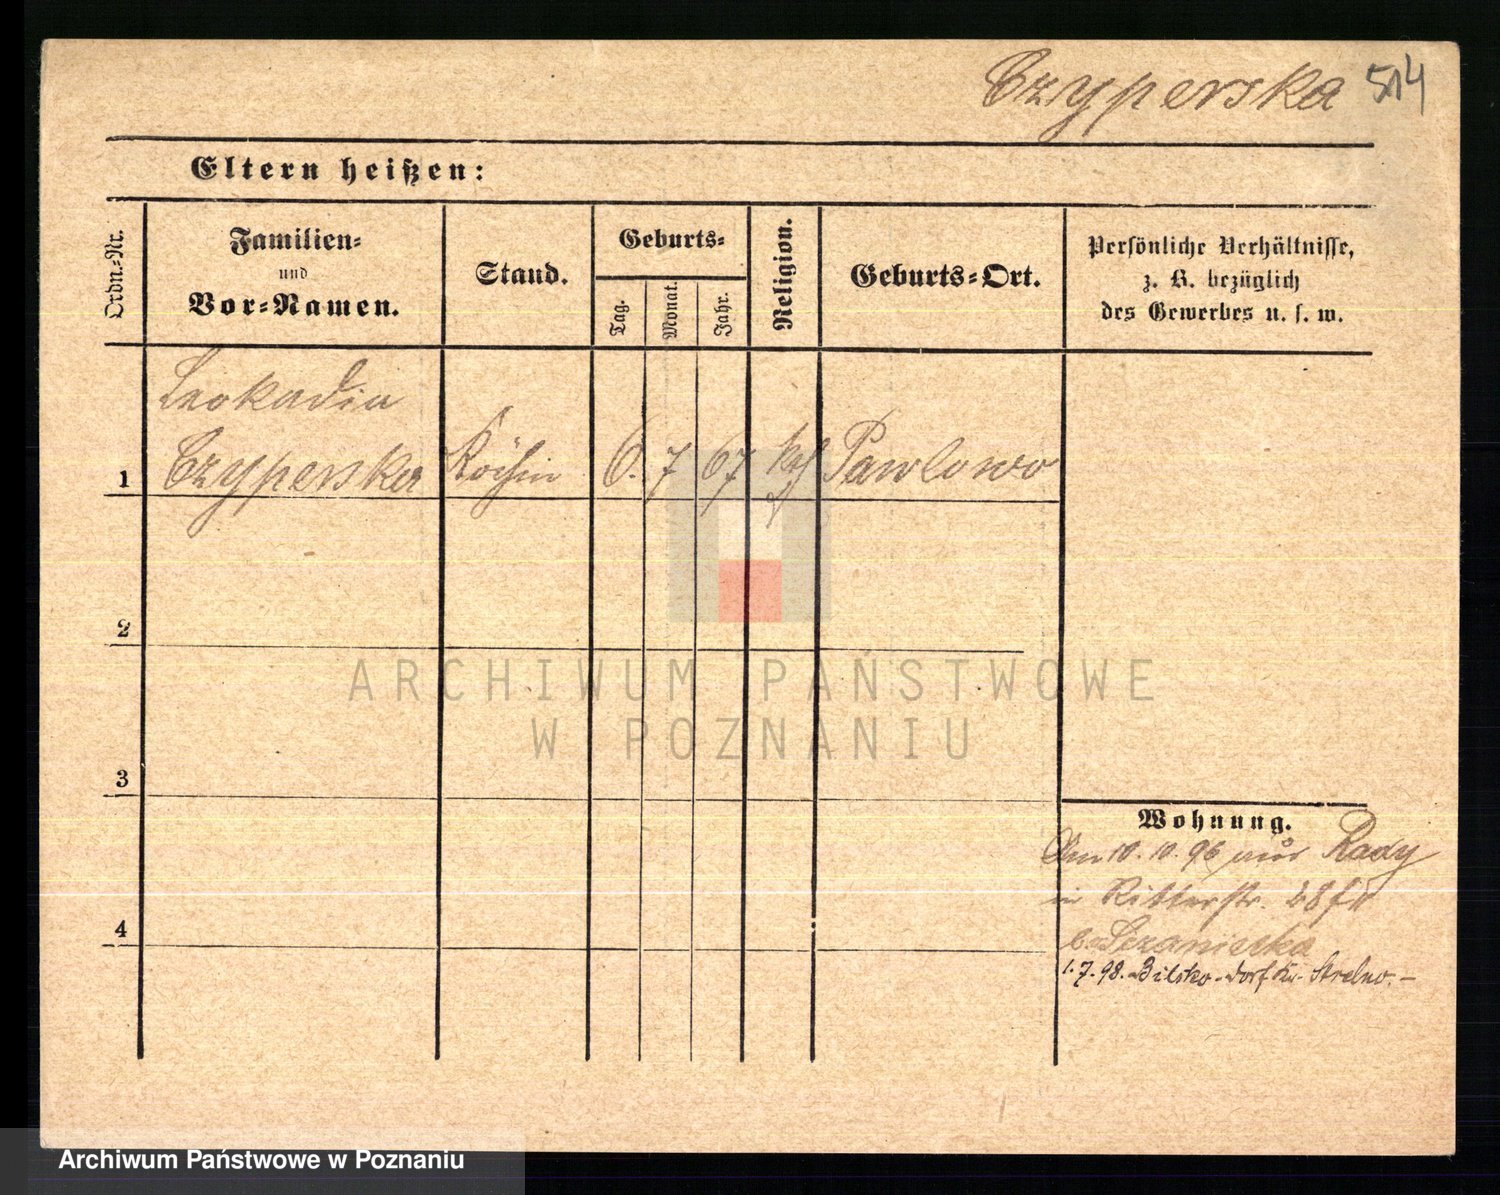 Czyperska 514
Eltern heißen:
Ordn.-Nr.
Familien-
und
Vor-Namen.
Stand.
Geburts-
Tag.
Monat.
Jahr.
Religion.
Geburts-Ort.
Persönliche Verhältnisse,
z. B. bezüglich
des Gewerbes u. s. w.
Leokadia
1 Czyperska Köchin 6. 7 67 kath Pawlowo
2
3
4
Wohnung.
Am 10. 10. 96 aus Rady
in Ritterstr. 28
b.
1.7.98. Bilsko-dorf Kr. Strelno.-
ARCHIWUM PAŃSTWOWE
W POZNANIU
Archiwum Państwowe w Poznaniu